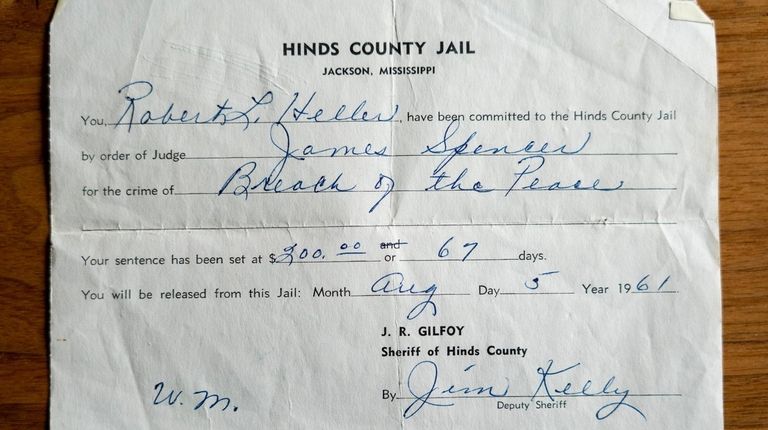 HINDS COUNTY JAIL
JACKSON, MISSISSIPPI
You, Robert L. Heller, have been committed to the Hinds County Jail
by order of Judge James Spencer
for the crime of Breach of the Peace
Your sentence has been set at $200.00 and or 67 days.
You will be released from this Jail: Month Aug Day 5 Year 1961.
J. R. GILFOY
Sheriff of Hinds County
By Jim Kelly
Deputy Sheriff
W. M.